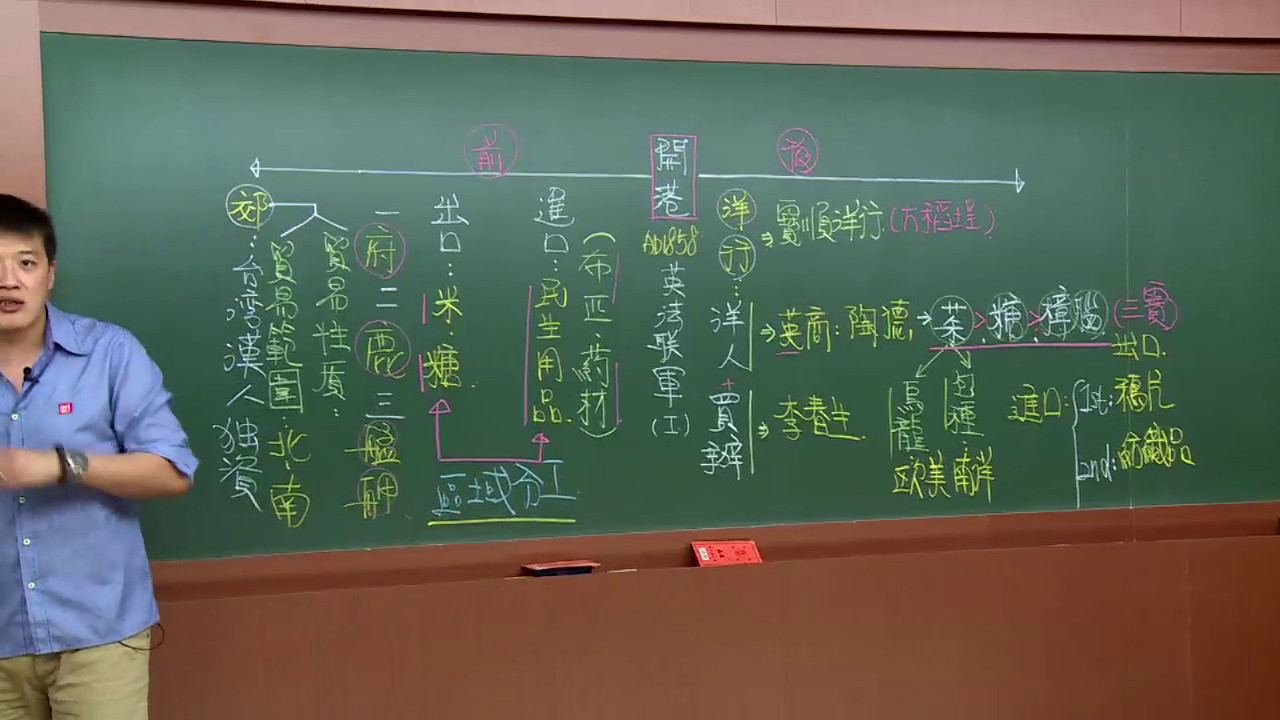 前
開港
後
郊：台灣漢人独資
貿易範圍：北、南
貿易性質：
一府二鹿三艋舺
出口：米、糖
進口：民生用品
(布匹、药材)
區域分工
AD1858
英法联軍(I)
洋行：洋人+買辦
⇒寶順洋行(大稻埕)
⇒英商：陶德
→茶>糖>樟腦(三寶)
出口
⇒李春生
烏龍
欧美
包種
南洋
進口：
1st：鴉片
2nd：紡織品